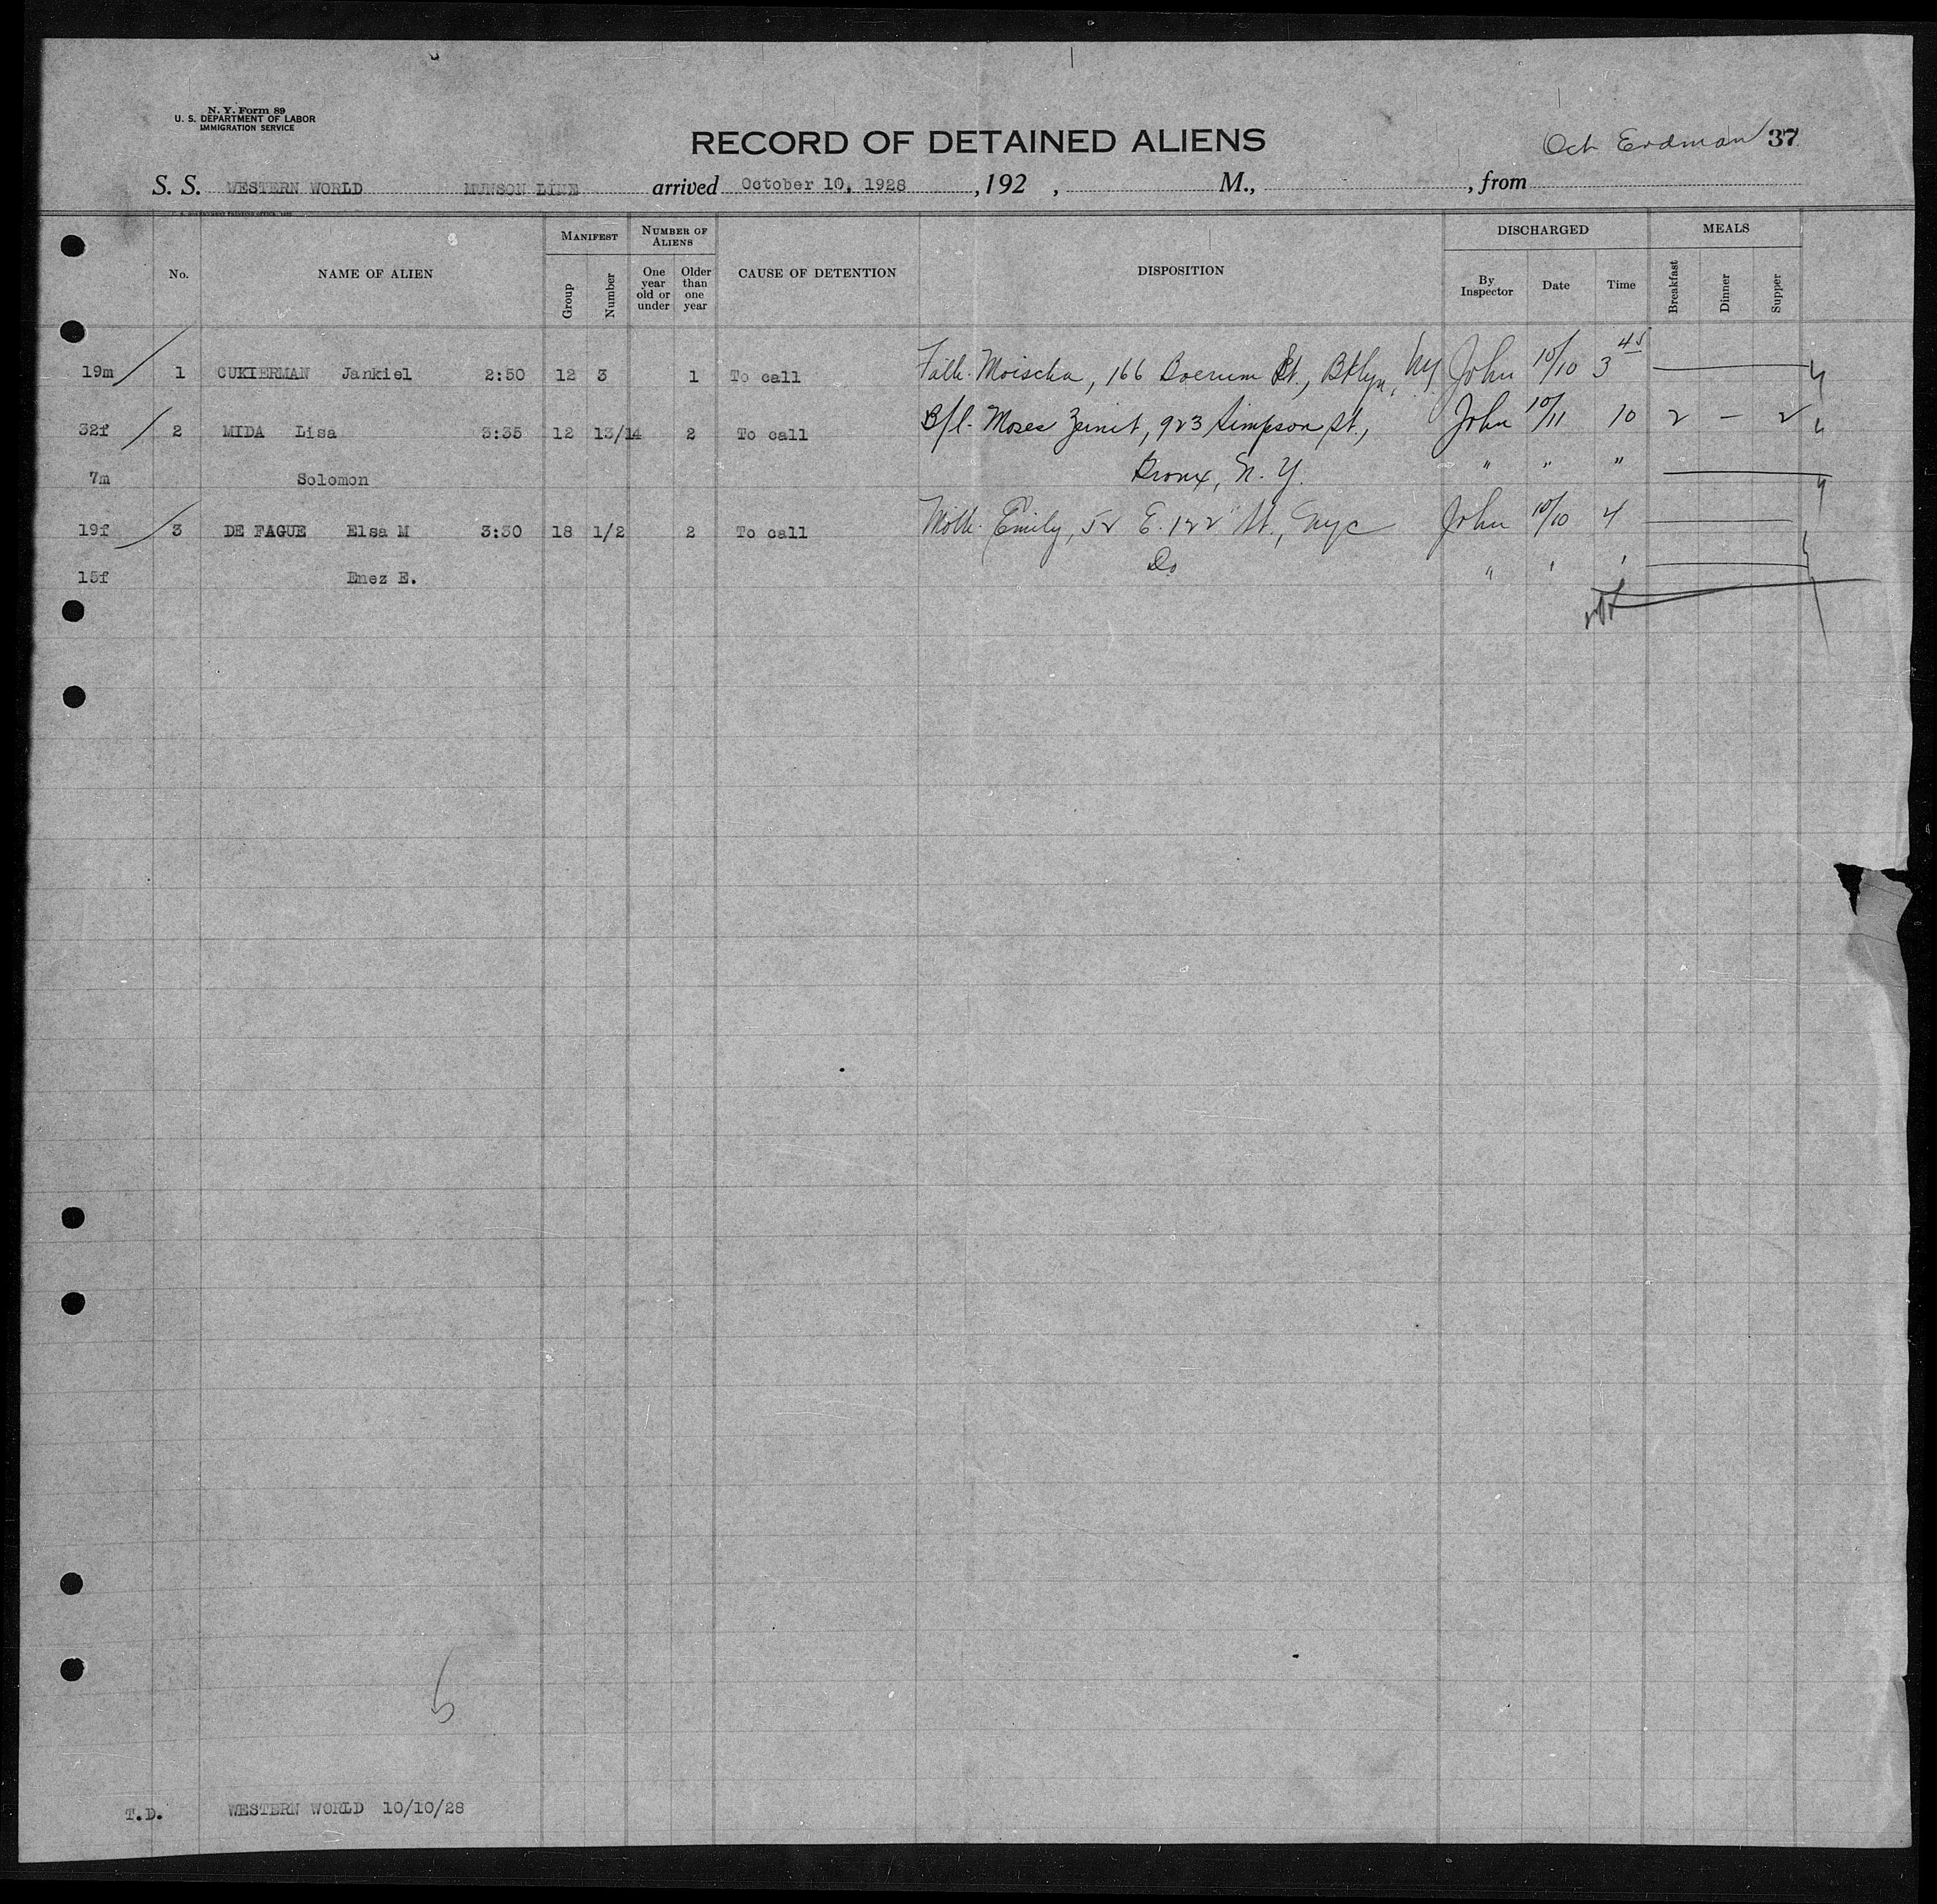 N. Y. Form 89
U. S. DEPARTMENT OF LABOR
IMMIGRATION SERVICE
RECORD OF DETAINED ALIENS
Och Erdman 37
S. S. WESTERN WORLD MUNSON LINE arrived October 10, 1928, 192 , M., , from
No. NAME OF ALIEN MANIFEST Group Number NUMBER OF ALIENS One year old or under Older than one year CAUSE OF DETENTION DISPOSITION DISCHARGED By Inspector Date Time MEALS Breakfast Dinner Supper
19m 1 CUKIERMAN Jankiel 2:50 12 3 1 To call Fath. Moischa, 166 Boerum St., Bklyn, NY John 10/10 3 45
32f 2 MIDA Lisa 3:35 12 13/14 2 To call B/l. Moses Zeinit, 923 Simpson St., John 10/11 10 2 – 2
7m Solomon Bronx, N. Y. " " "
19f 3 DE FAGUE Elsa M 3:30 18 1/2 2 To call Moth. Emily, 52 E. 122 St., NYC John 10/10 4
15f Enez E. Do " " "
5
T.D. WESTERN WORLD 10/10/28